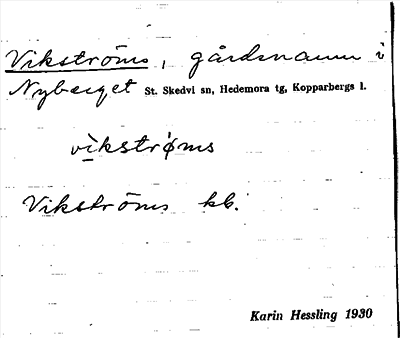 Vikströms, gårdsnamn i
Nyberget St. Skedvi sn, Hedemora tg, Kopparbergs l.
vìkstrǿms
Vikströms kb.
Karin Hessling 1930